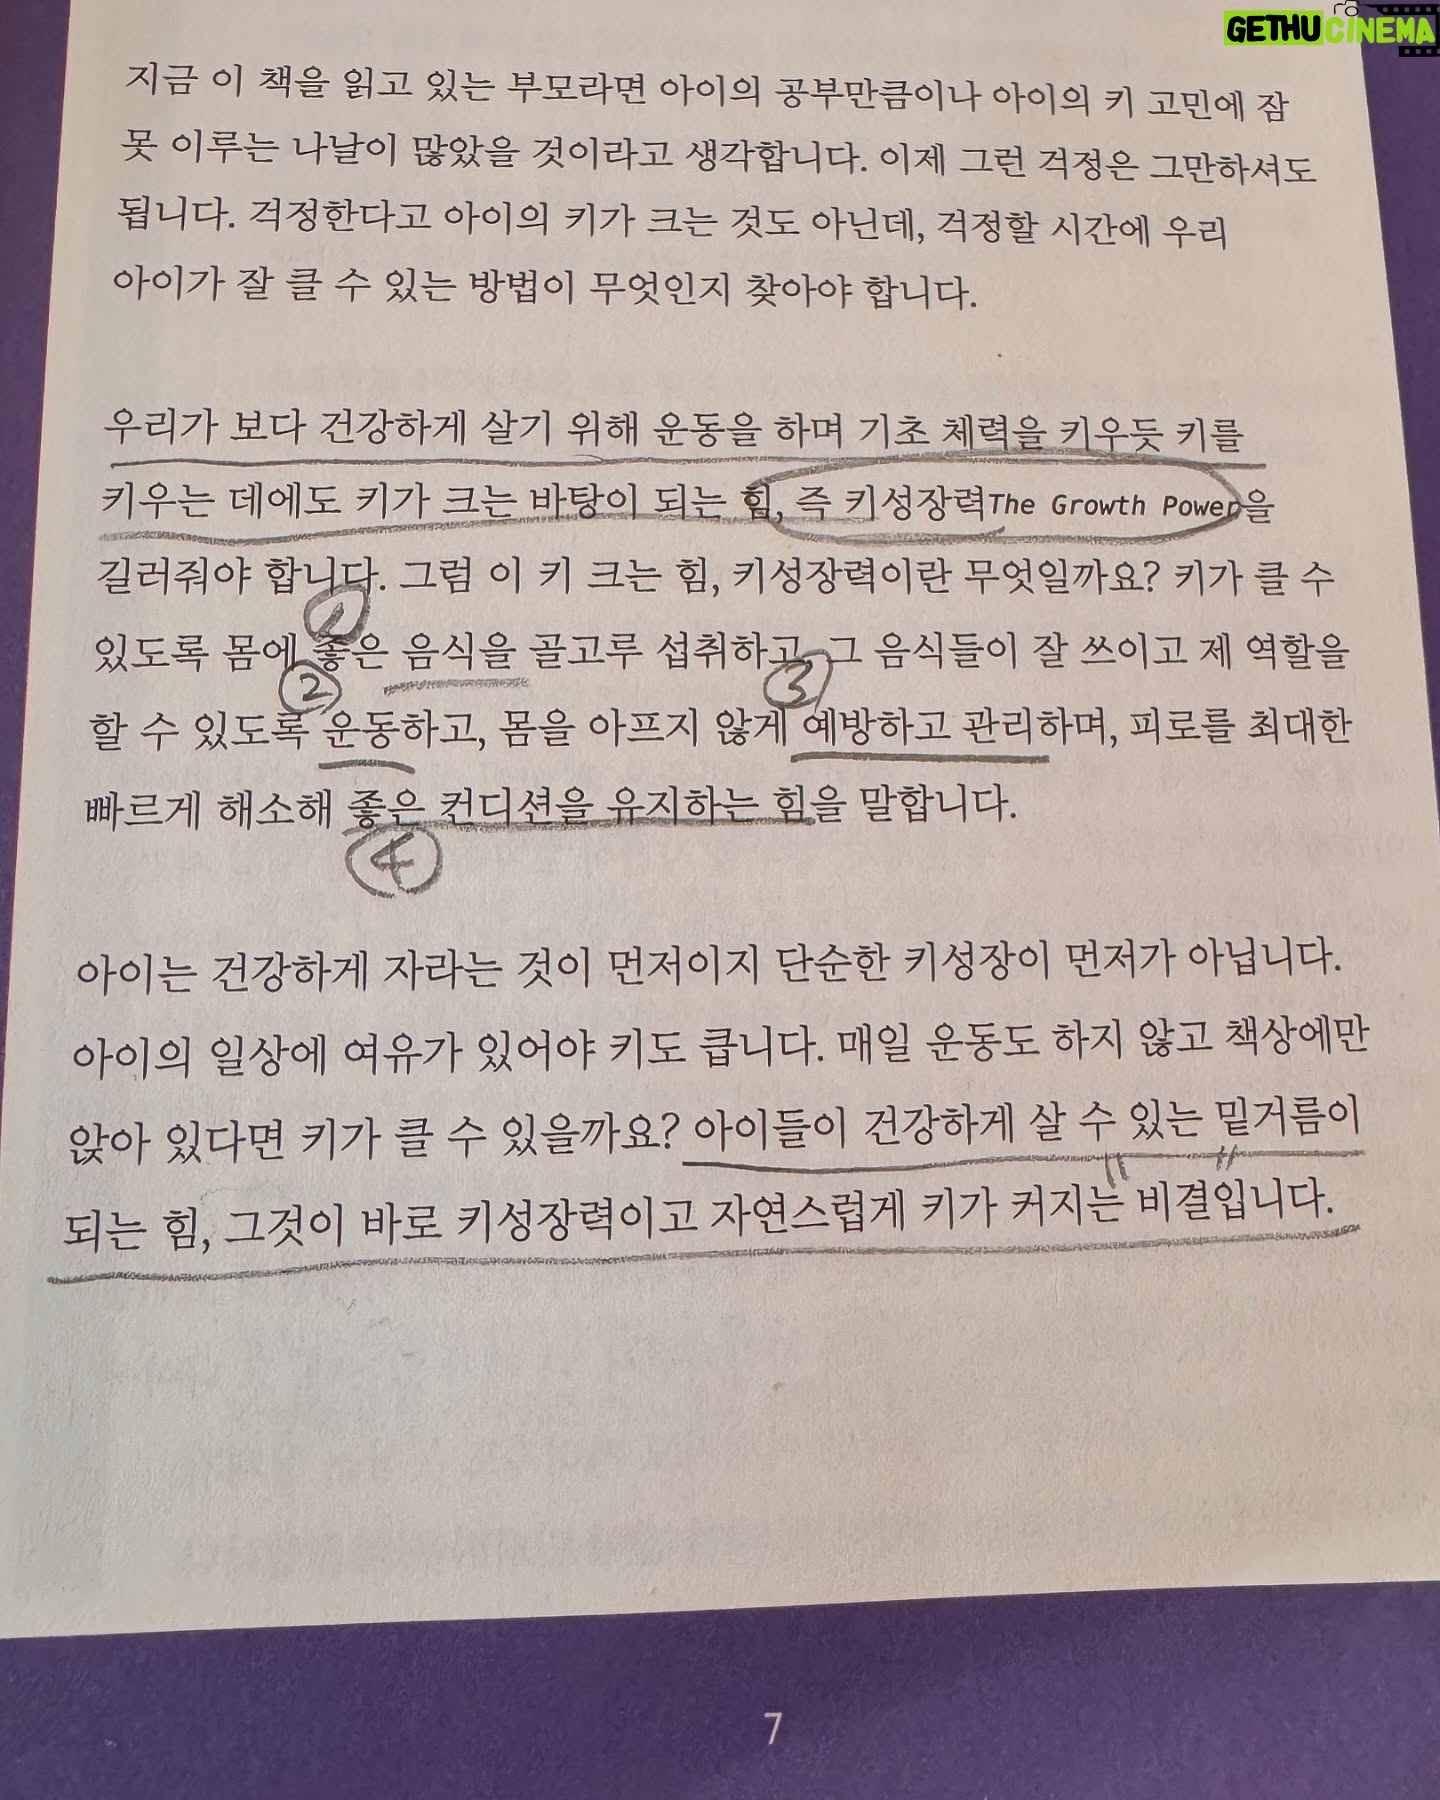 GETHUCINEMA
지금 이 책을 읽고 있는 부모라면 아이의 공부만큼이나 아이의 키 고민에 잠
못 이루는 나날이 많았을 것이라고 생각합니다. 이제 그런 걱정은 그만하셔도
됩니다. 걱정한다고 아이의 키가 크는 것도 아닌데, 걱정할 시간에 우리
아이가 잘 클 수 있는 방법이 무엇인지 찾아야 합니다.
우리가 보다 건강하게 살기 위해 운동을 하며 기초 체력을 키우듯 키를
키우는 데에도 키가 크는 바탕이 되는 힘, 즉 키성장력The Growth Power을
길러줘야 합니다. 그럼 이 키 크는 힘, 키성장력이란 무엇일까요? 키가 클 수
1
있도록 몸에 좋은 음식을 골고루 섭취하고, 그 음식들이 잘 쓰이고 제 역할을
2 3
할 수 있도록 운동하고, 몸을 아프지 않게 예방하고 관리하며, 피로를 최대한
빠르게 해소해 좋은 컨디션을 유지하는 힘을 말합니다.
4
아이는 건강하게 자라는 것이 먼저이지 단순한 키성장이 먼저가 아닙니다.
아이의 일상에 여유가 있어야 키도 큽니다. 매일 운동도 하지 않고 책상에만
앉아 있다면 키가 클 수 있을까요? 아이들이 건강하게 살 수 있는 밑거름이
되는 힘, 그것이 바로 키성장력이고 자연스럽게 키가 커지는 비결입니다.
7